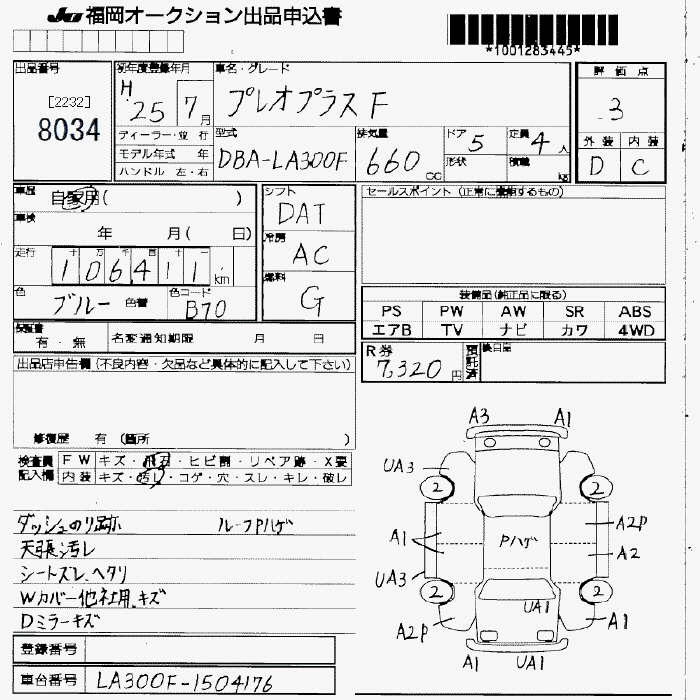 JU 福岡オークション出品申込書
*1001283445*
出品番号 初年度登録年月 車名・グレード 評価点
[2232] H 25 7月 プレオプラス F 3
8034
ディーラー・並行 型式 排気量 ドア 5 定員 4人 外装 内装
モデル年式 年 DBA-LA300F 660cc 形状 積載 kg D C
ハンドル 左・右
車歴 自家用( ) シフト DAT セールスポイント (正常に機能するもの)
車検 年 月( 日) 冷房 AC
走行 十万千百十 106411km 燃料 G
色 ブルー 色替 色コード B70
装備品(純正品に限る)
PS PW AW SR ABS
エアB TV ナビ カワ 4WD
保証書 有・無 名変通知期限 月 日
R券 7,320円 預託済
出品店申告欄 (不良内容・欠品など具体的に記入して下さい)
修復歴 有 (箇所 )
検査員記入欄 FW キズ・飛石・ヒビ割・リペア跡・X要
内装 キズ・汚レ・コゲ・穴・スレ・キレ・破レ
ダッシュのり跡 ルーフPハゲ
天張汚レ
シートズレ、ヘタリ
Wカバー他社用、キズ
Dミラーキズ
A3 A1
UA3
2 2
A2P
A1 Pハゲ A2
UA3
2 2
UA1
A2P A1
A1 UA1
登録番号
車台番号 LA300F-1504176